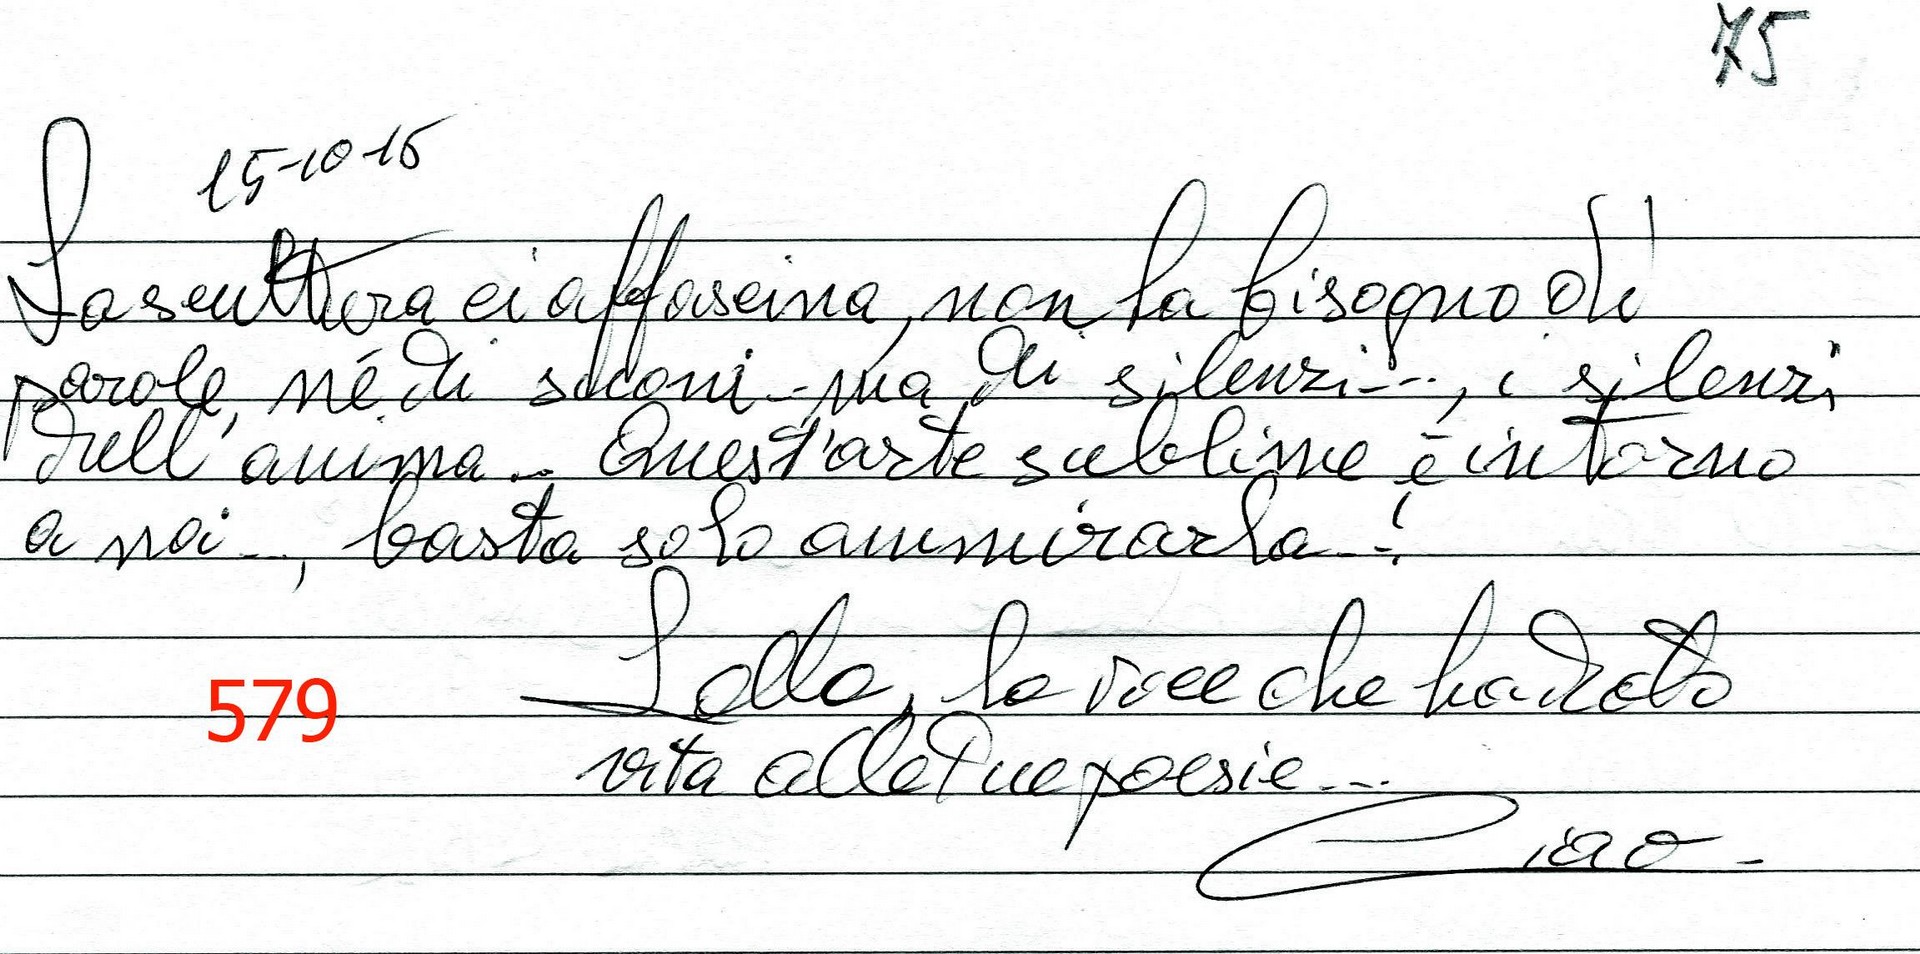 75
15-10-15
La scultura ci affascina, non ha bisogno di
parole, né di suoni - ma di silenzi..., i silenzi
dell'anima... Quest'arte sublime è intorno
a noi..., basta solo ammirarla..!
Lalla, la voce che ha dato
579
vita alle Tue poesie...
Ciao -